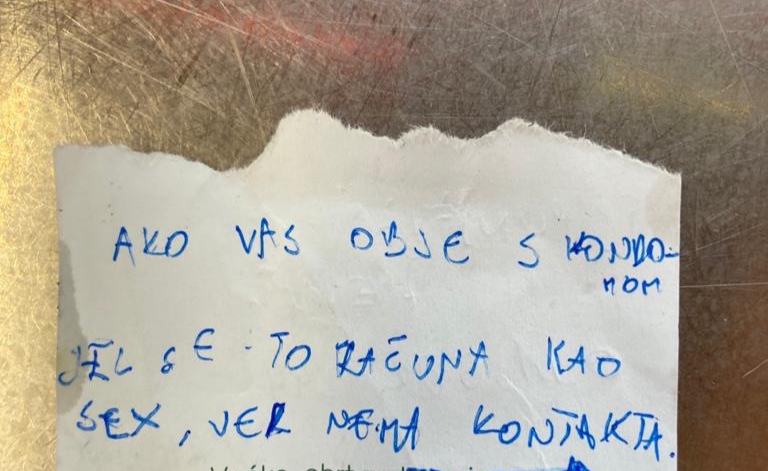 AKO VAS OBJE S KONDO-
NOM
JEL SE TO RAČUNA KAO
SEX, JER NEMA KONTAKTA.